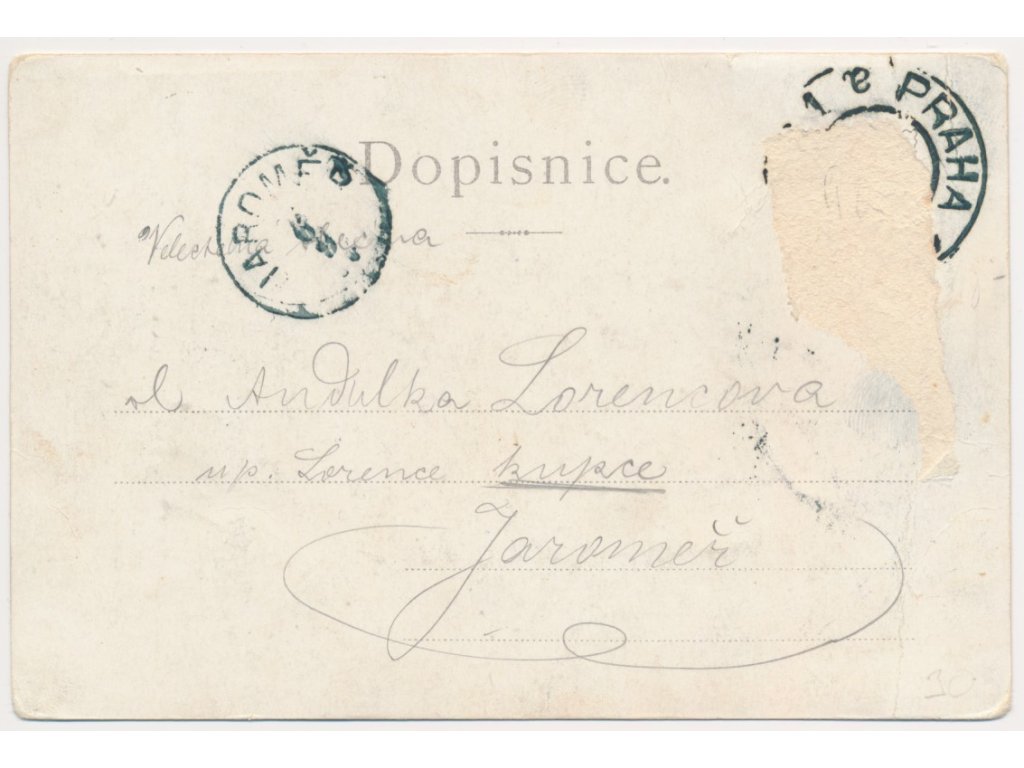 1 e PRAHA
Dopisnice.
JAROMĚŘ
Velectěná slečna
sl Andulka Lorencova
up. Lorence kupce
Jaroměř
30